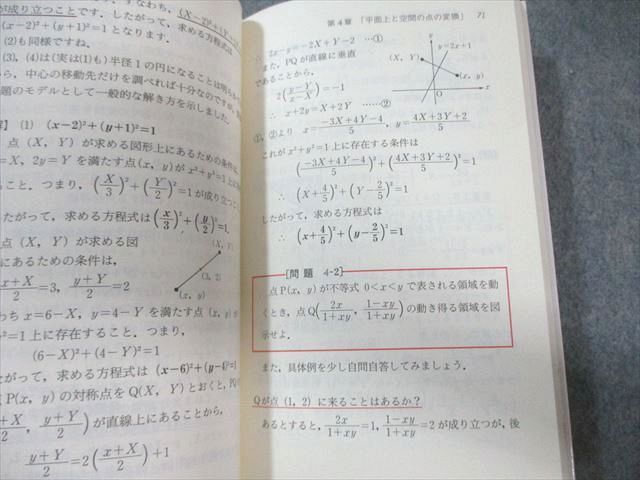 が成り立つことです。したがって、求める方程式は
(x-2)²+(y+1)²=1となります。
(2)も同様ですね。
(3), (4)は(実は(1)も)半径1の円になることは
ら、中心の移動先だけを調べれば十分なのですが
題のモデルとして一般的な解き方を示しました。
(1) (x-2)²+(y+1)²=1
点(X, Y)が求める図形上にあるための条件は,
=X, 2y=Yを満たす点(x, y)がx²+y²=1上に
ること. つまり, (X/3)²+(Y/2)²=1が成り立つこ
たがって, 求める方程式は(x/3)²+(y/2)²=1.
点(X, Y)が求める図
にあるための条件は,
x+X/2=3, y+Y/2=2
(X, Y)
(3, 2)
(x, y)
わちx=6-X, y=4-Yを満たす点(x, y)が
1上に存在すること. つまり,
(6-X)²+(4-Y)²=1
たがって, 求める方程式は(x-6)²+(y-4)²=1
点P(x, y)の対称点をQ(X, Y)とおくと,
x+X/2, y+Y/2)が直線上にあることから,
y+Y/2=2(x+X/2)+1
第4章 「平面上と空間の点の変換」 71
∴ 2x-y=-2X+Y-2 …①
また, PQが直線に垂直
であることから,
2(y-Y/x-X)=-1
∴ x+2y=X+2Y ……②
y
y=2x+1
(X, Y)
(x, y)
O
x
①, ②より x=-3X+4Y-4/5, y=4X+3Y+2/5
これがx²+y²=1上に存在する条件は
(-3X+4Y-4/5)²+(4X+3Y+2/5)²=1
∴ (X+4/5)²+(Y-2/5)²=1
したがって, 求める方程式は
∴ (x+4/5)²+(y-2/5)²=1
[問題 4-2]
点P(x, y)が不等式 0<x<y で表される領域を動
くとき, 点Q(2x/1+xy, 1-xy/1+xy)の動き得る領域を図
示せよ.
また, 具体例を少し自問自答してみましょう.
Qが点(1, 2)に来ることはあるか?
あるとすると, 2x/1+xy=1, 1-xy/1+xy=2が成り立つが, 後